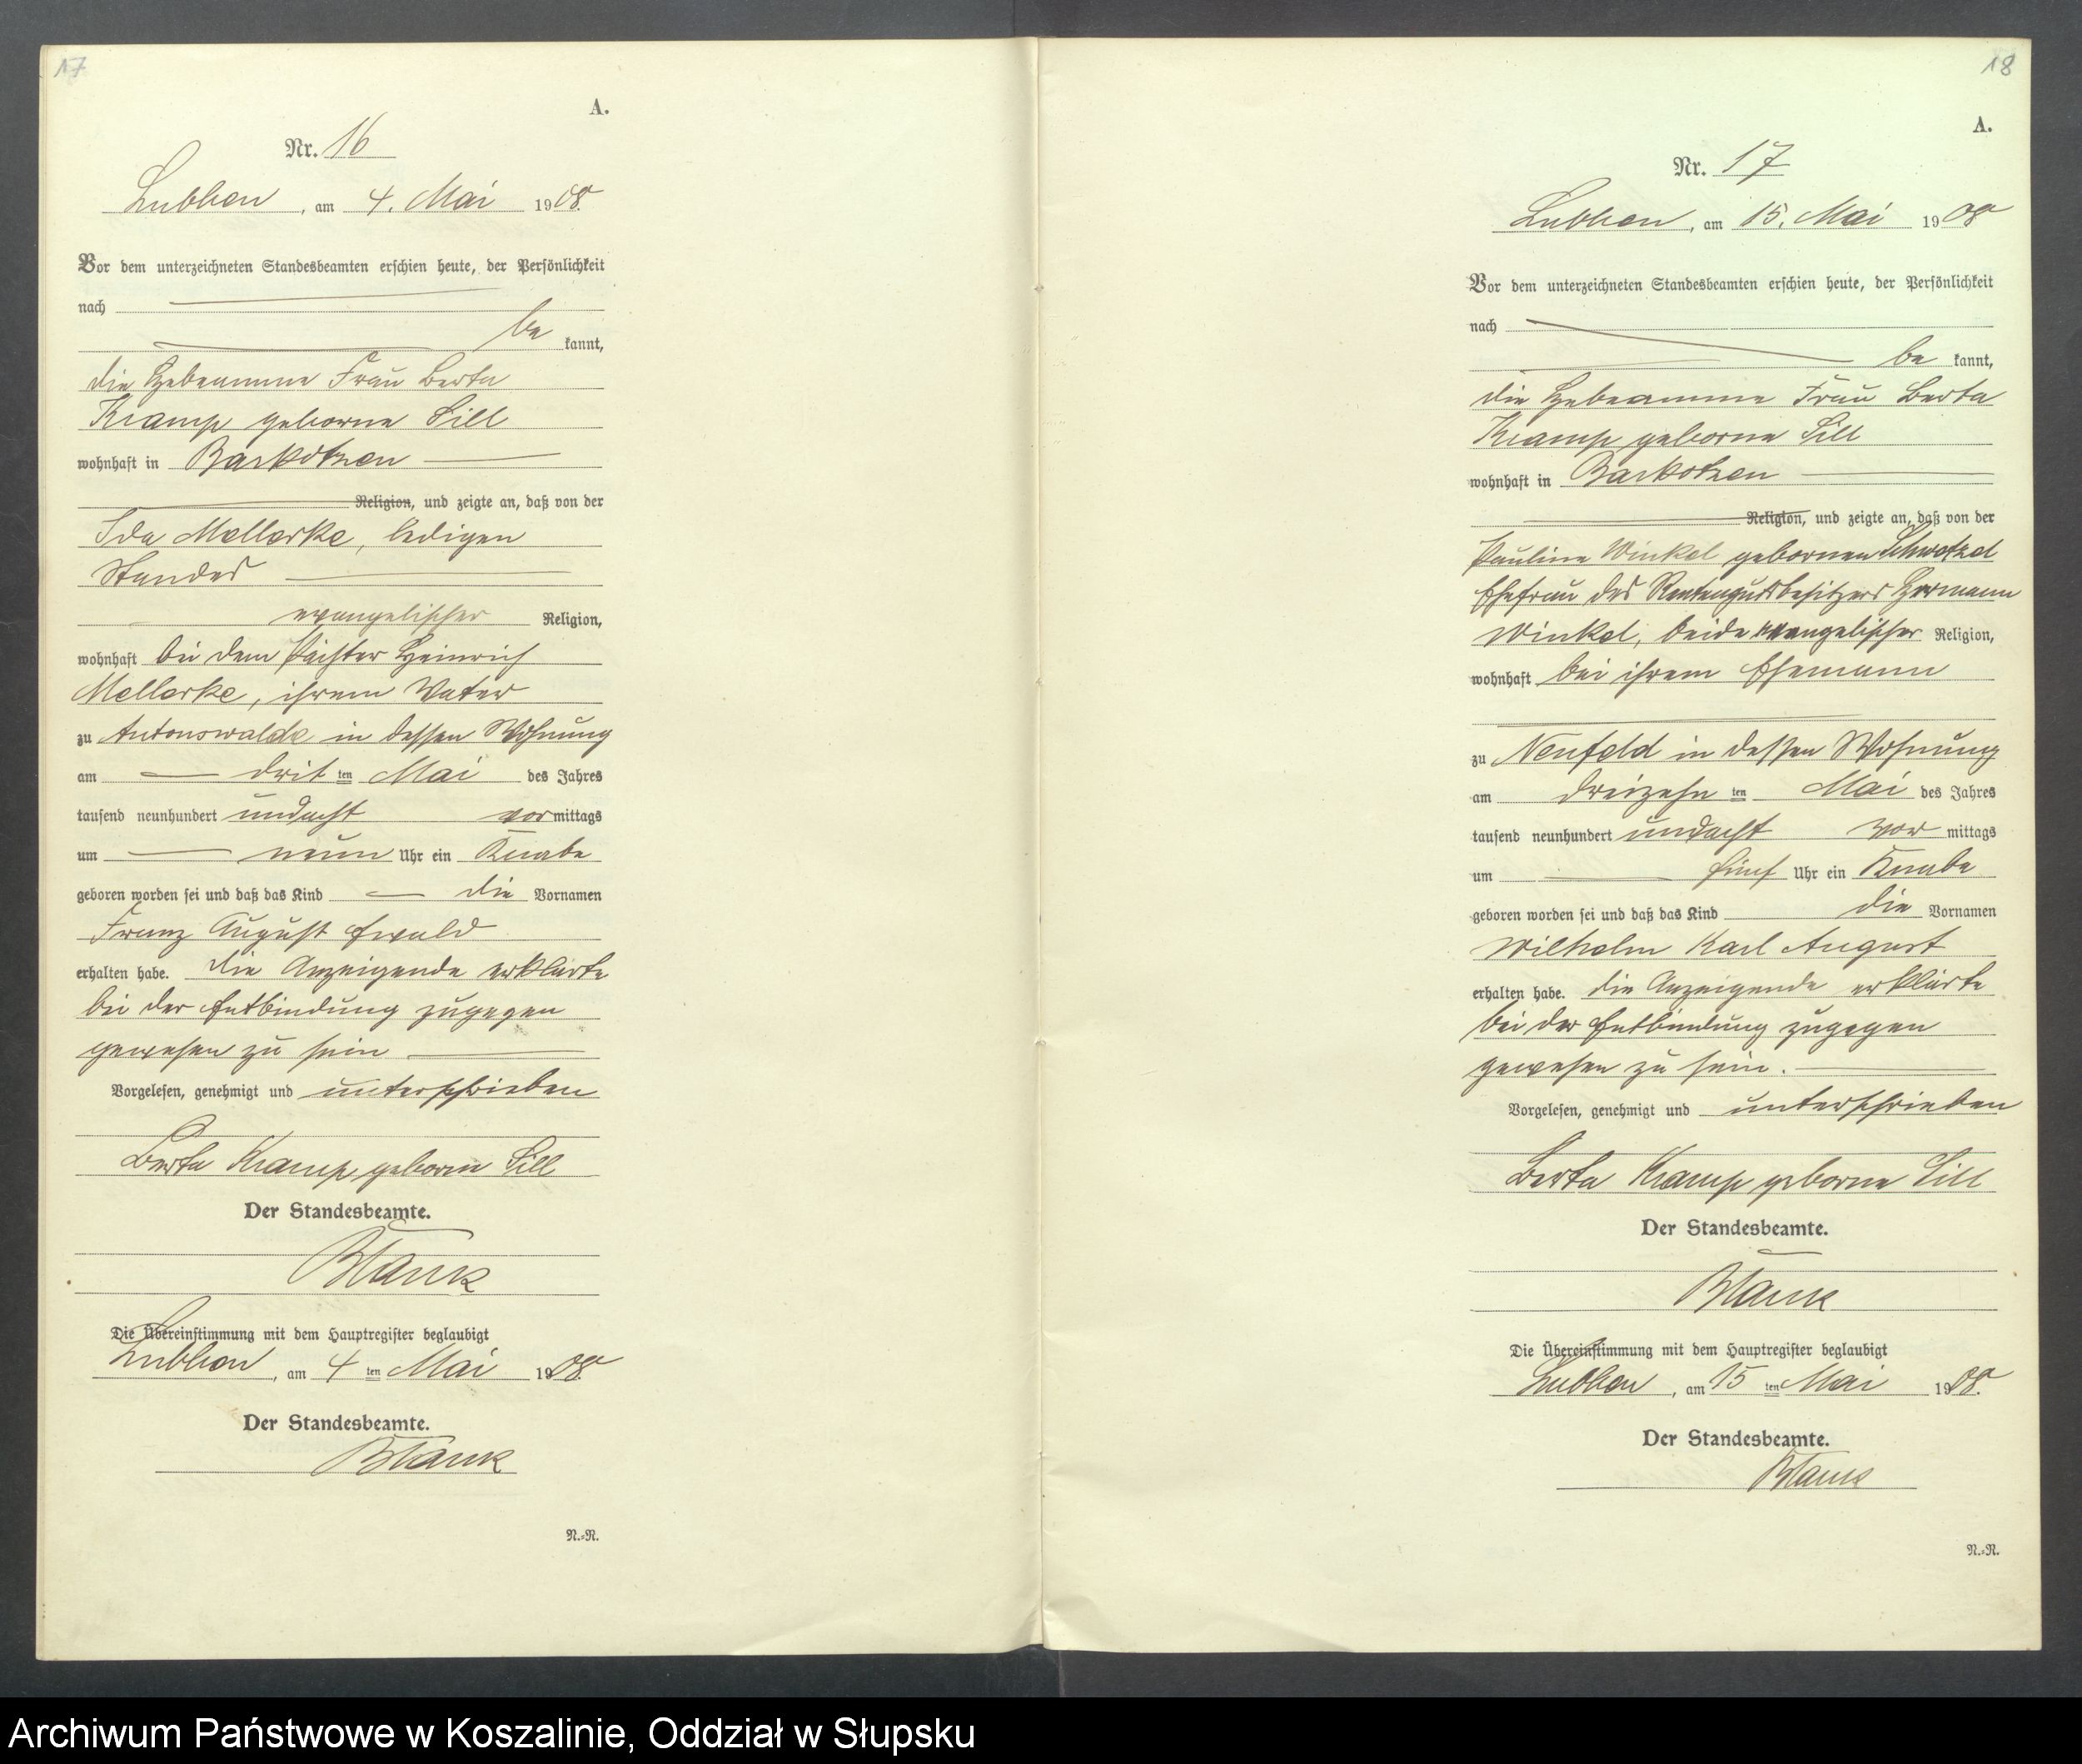 17
A.
Nr. 16
Lubben, am 4. Mai 1908.
Vor dem unterzeichneten Standesbeamten erschien heute, der Persönlichkeit
nach
be kannt,
die Hebeamme Frau Berta
Kramp geborne Sill
wohnhaft in Barkotzen
Religion, und zeigte an, daß von der
Ida Mellerke, ledigen
Standes
evangelischer Religion,
wohnhaft bei dem Pächter Heinrich
Mellerke, ihrem Vater
zu Antonswalde in dessen Wohnung
am drit ten Mai des Jahres
tausend neunhundert undacht vormittags
um neun Uhr ein Knabe
geboren worden sei und daß das Kind die Vornamen
Franz August Ewald
erhalten habe. die Anzeigende erklärte
bei der Entbindung zugegen
gewesen zu sein
Vorgelesen, genehmigt und unterschrieben
Berta Kramp geborne Sill
Der Standesbeamte.
Blank
Die Übereinstimmung mit dem Hauptregister beglaubigt
Lubben, am 4 ten Mai 1908.
Der Standesbeamte.
Blank
N.=R.
18
A.
Nr. 17
Lubben, am 15. Mai 1908
Vor dem unterzeichneten Standesbeamten erschien heute, der Persönlichkeit
nach
be kannt,
die Hebeamme Frau Berta
Kramp geborne Sill
wohnhaft in Barkotzen
Religion, und zeigte an, daß von der
Pauline Winkel gebornen Schwotzel
Ehefrau des Rentengutsbesitzers Hermann
Winkel, beide evangelischer Religion,
wohnhaft bei ihrem Ehemann
zu Neufeld in dessen Wohnung
am dreizehn ten Mai des Jahres
tausend neunhundert undacht vor mittags
um fünf Uhr ein Knabe
geboren worden sei und daß das Kind die Vornamen
Wilhelm Karl August
erhalten habe. die Anzeigende erklärte
bei der Entbindung zugegen
gewesen zu sein.
Vorgelesen, genehmigt und unterschrieben
Berta Kramp geborne Sill
Der Standesbeamte.
Blank
Die Übereinstimmung mit dem Hauptregister beglaubigt
Lubben, am 15 ten Mai 1908.
Der Standesbeamte.
Blank
N.=R.
Archiwum Państwowe w Koszalinie, Oddział w Słupsku